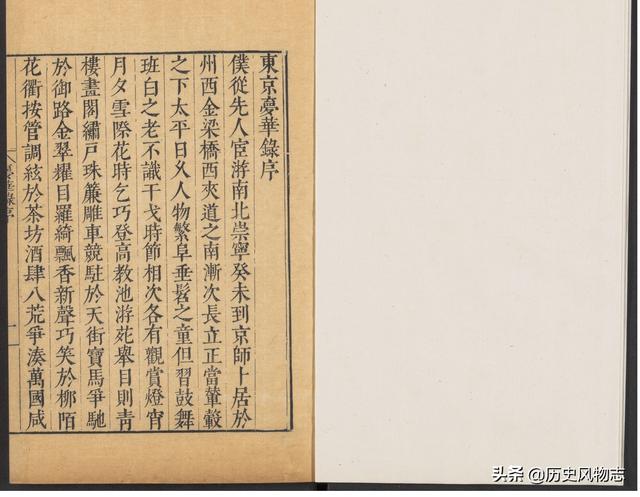 東京夢華錄序
僕從先人宦游南北崇寧癸未到京師卜居於
州西金梁橋西夾道之南漸次長立正當輦轂
之下太平日久人物繁阜垂髫之童但習鼓舞
班白之老不識干戈時節相次各有觀賞燈宵
月夕雪際花時乞巧登高教池游苑舉目則青
樓畫閣繡戶珠簾雕車競駐於天街寶馬爭馳
於御路金翠耀目羅綺飄香新聲巧笑於柳陌
花衢按管調絃於茶坊酒肆八荒爭湊萬國咸
一
头条 @历史风物志